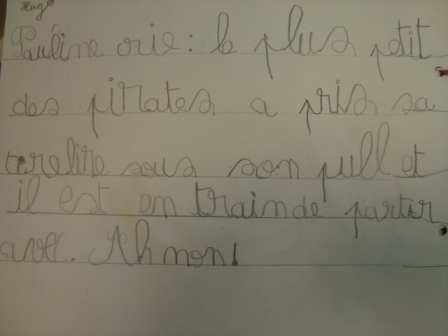 Hugo
Pauline crie : le plus petit
des pirates a pris sa
terelire sous son pull et
il est en trainde partir
avec. Ah non!